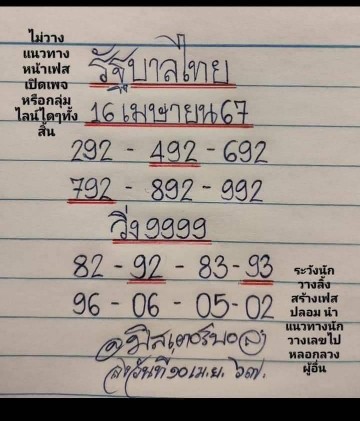 ไม่วาง
แนวทาง
หน้าเฟส
เปิดเพจ
หรือกลุ่ม
ไลน์ใดๆทั้ง
สิ้น
รัฐบาลไทย
16 เมษายน 67
292 - 492 - 692
792 - 892 - 992
วิ่ง 9999
82 - 92 - 83 - 93
96 - 06 - 05 - 02
ระวังนัก
วางลิ้ง
สร้างเฟส
ปลอม นำ
แนวทางนัก
วางเลขไป
หลอกลวง
ผู้อื่น
มิสเตอร์บอล
วันที่ ๑๐ เม.ย. ๖๗.